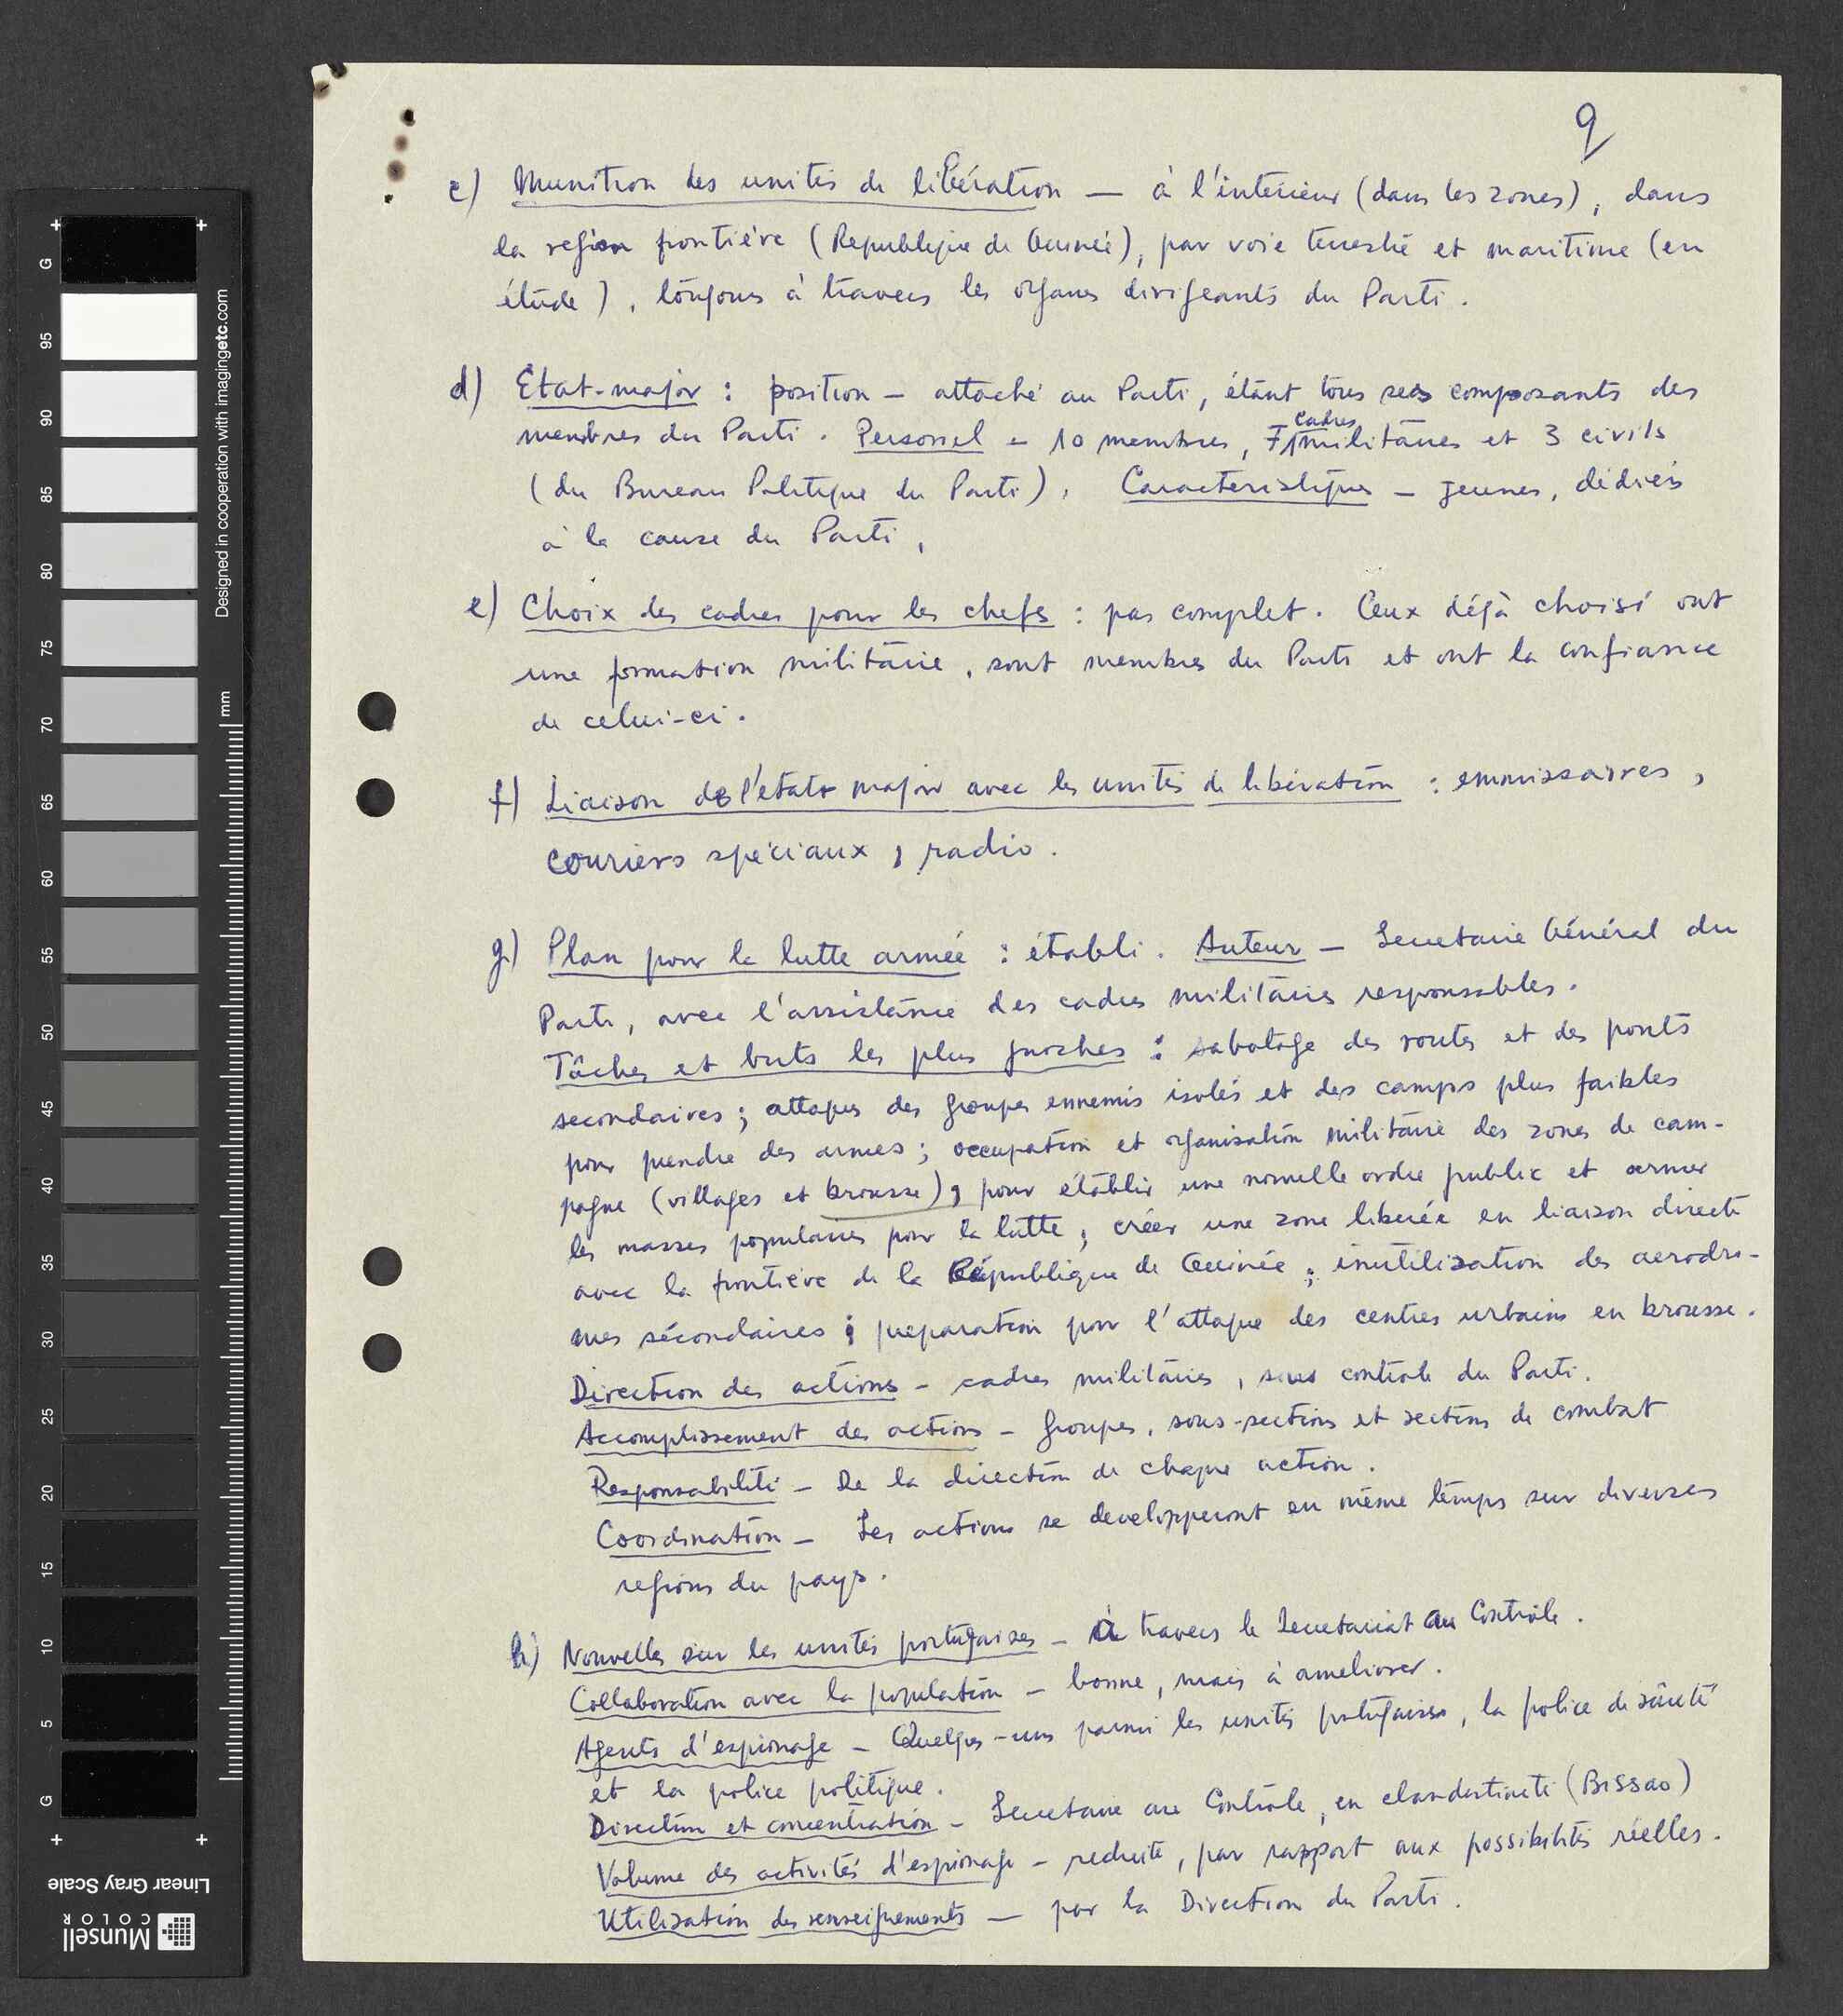 9
c) Munition des unités de libération — à l'intérieur (dans les zones), dans
la région frontière (Republique de Guinée), par voie terrestre et maritime (en
étude), toujours à travers les organes dirigeants du Parti.
d) Etat-major : position — attaché au Parti, étant tous ses composants des
membres du Parti. Personnel — 10 membres, 7 cadres militaires et 3 civils
(du Bureau Politique du Parti). Caracteristiques — jeunes, dédiés
à la cause du Parti.
e) Choix des cadres pour les chefs : pas complet. Ceux déjà choisi ont
une formation militaire, sont membres du Parti et ont la confiance
de celui-ci.
f) Liaison de l'état major avec les unités de libération : emmissaires,
couriers spéciaux, radio.
g) Plan pour la lutte armée : établi. Auteur — Secretaire Général du
Parti, avec l'assistance des cadres militaires responsables.
Tâches et buts les plus proches : sabotage des routes et des ponts
secondaires ; attaques des groupes ennemis isolés et des camps plus faibles
pour prendre des armes ; occupation et organisation militaire des zones de cam-
pagne (villages et brousse), pour établir une nouvelle ordre public et armer
les masses populaires pour la lutte ; créer une zone liberée en liaison directe
avec la frontière de la République de Guinée ; inutilization des aerodro-
mes sécondaires ; preparation pour l'attaque des centres urbains en brousse.
Direction des actions — cadres militaires, sous controle du Parti.
Accomplissement des actions — groupes, sous-sections et sections de combat
Responsabilité — De la direction de chaque action.
Coordination — Les actions se developperont en même temps sur diverses
regions du pays.
h) Nouvelles sur les unités portugaises — à travers le Secretariat au Contrôle.
Collaboration avec la population — bonne, mais à ameliorer.
Agents d'espionage — Quelques-uns parmi les unités portugaises, la police de sûreté
et la police politique.
Direction et concentration — Secretaire au Contrôle, en clandestineté (Bissao)
Volume des activités d'espionage — reduite, par rapport aux possibilités réelles.
Utilization des renseignements — par la Direction du Parti.
G 95 90 85 80 75 70 65 60 55 50 45 40 35 30 25 20 15 10 5 G
mm
Designed in cooperation with imagingetc.com
Linear Gray Scale
Munsell
COLOR